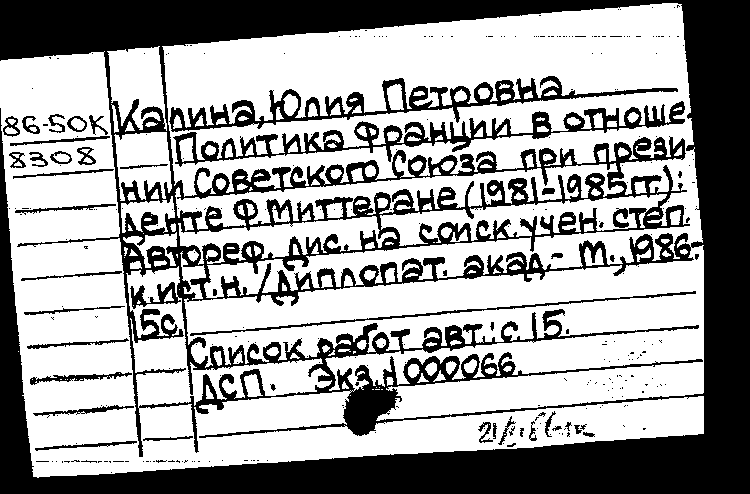 86-50К
8308
Калина, Юлия Петровна.
Политика Франции в отноше-
нии Советского Союза при прези-
денте Ф. Миттеране (1981-1985гг.):
Автореф. дис. на соиск. учен. степ.
к.ист.н. / Диплопат. акад.- М., 1986.-
15с.
Список работ авт.: с. 15.
ДСП. Экз. N 000066.